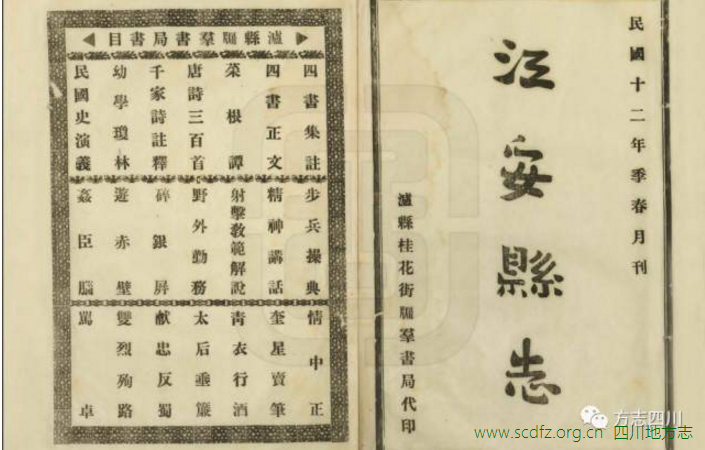 民國十二年季春月刊
江安縣志
瀘縣桂花街牖羣書局代印
瀘縣牖羣書局書目
四書集註
四書正文
菜根譚
唐詩三百首
千家詩註釋
幼學瓊林
民國史演義
步兵操典
精神講話
射擊教範解說
野外勤務
碎銀屏
遊赤壁
姦臣腦
情中正
奎星賣筆
青衣行酒
太后垂簾
献忠反蜀
雙烈殉路
罵卓
方志四川
www.scdfz.org.cn 四川地方志